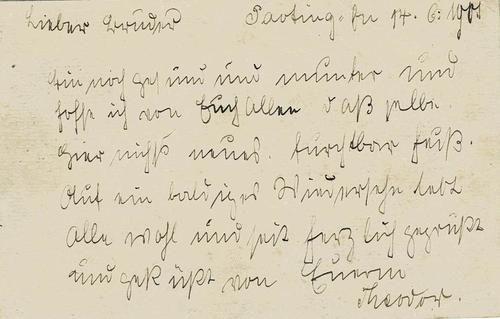 Lieber Bruder Paoting-Fu 14. 6. 1901
Bin noch gesund und munter und
hoffe ich von Euch Allen daßselbe.
Hier nichts neues. Furchtbar heiß.
Auf ein baldiges Wiedersehn lebt
Alle wohl und seit herzlich gegrüßt
und geküßt von Euerm
Theodor.